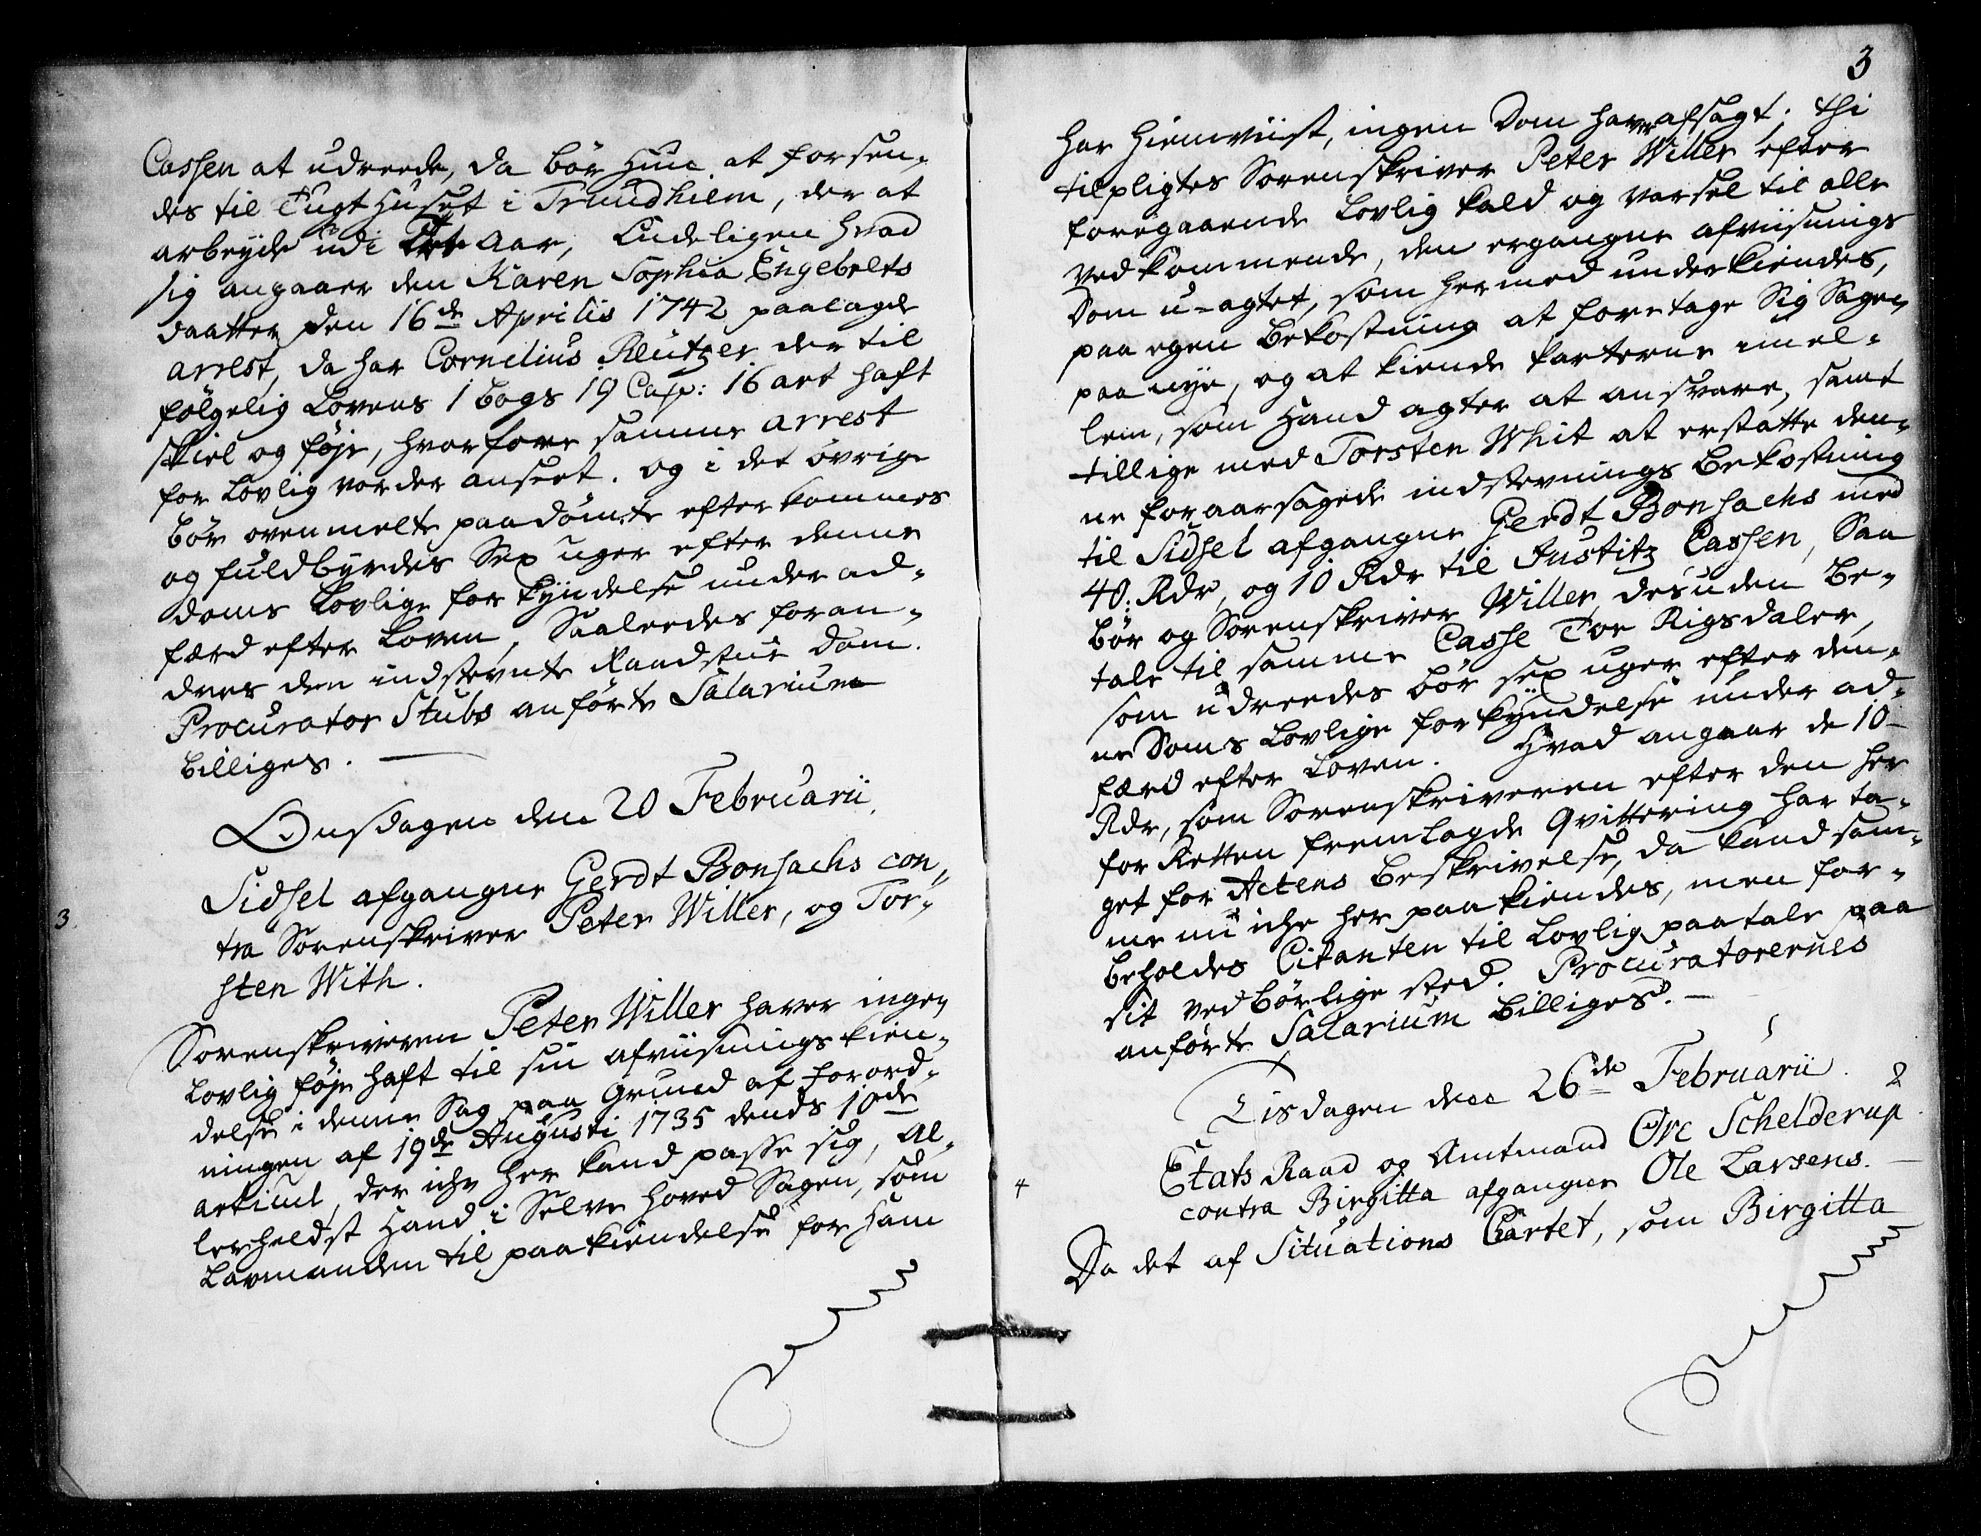 Cassen at udreede, da bör Hun at forsen-
des til Tugt Huset i Trundhiem, der at
arbeyde udi Aar, Endeligen hvad
sig angaaer den Karen Sophia Engebrets
daatter den 16de Aprilis 1742 paalagde
arrest, da har Cornelius Reützer der til
fölgelig Lovens 1 bogs 19 Cap: 16 art haft
skiel og föje, hvorfore samme arrest
for Lovlig vorder anseet. og i det övrige
bör ovenmelte paadömte efterkommes
og fuldbyrdes Sex uger efter denne
doms Lovlige forkyndelse under ad-
færd efter Loven. Saaleedes foran-
dres den indstevnte Raadstue Dom.
Procurator Stubs anförte Salarium
billiges.
Onsdagen den 20 Februarii.
3.
Sidsel afgangne Gerdt Bonsachs con-
tra Sorenskriver Peter Willer, og Tor-
sten With.
Sorenskriveren Peter Willer haver ingen
Lovlig föje haft til sin afviisnings kien-
delse i denne Sag paa Grund af Forord-
ningen af 19de Augusti 1735 dends 10de
artiul, der iche her kand passe sig, Al-
lerheldst Hand i Selve hoved Sagen, som
Lavmanden til paakiendelse for Ham
3
har Hiemviist, ingen Dom haver afsagt; thi
tilpligtes Sorenskriver Peter Willer efter
foregaaende Lovlig kald og varsel til alle
vedkommende, den ergangne afviisnings
Dom u-agtet, som hermed underkiendes,
paa egen bekostning at foretage Sig Sagen
paa nye, og at kiende parterne imel-
lem, som Hand agter at ansvare, samt
tillige med Torsten Whit at erstatte den-
ne foraarsagede indstevnings bekostning
til Sidsel afgangne Gerdt Bonsachs med
40: Rdr, og 10 Rdr til Justitz Cassen, Saa
bör og Sorenskriver Willer desuden be-
tale til samme Casse Toe Rigsdaler,
som udreedes bör sex uger efter den-
ne Doms Lovlige forkyndelse under ad-
færd efter Loven. Hvad angaar de 10
Rdr, som Sorenskriveren efter den her
for Retten fremlagde Qvittering har ta-
get for Actens beskrivelse, da kand sam-
me nu iche her paakiendes, men for-
beholdes Citanten til Lovlig paatale paa
sit vedbörlige sted. Procuratorernes
anförte Salarium billiges.
Tisdagen den 26de Februarii.
2
4
Etats Raad og Amtmand Ove Schelderup
contra Birgitta afgangne Ole Larsens.
Da det af Situations Cartet, som Birgitta